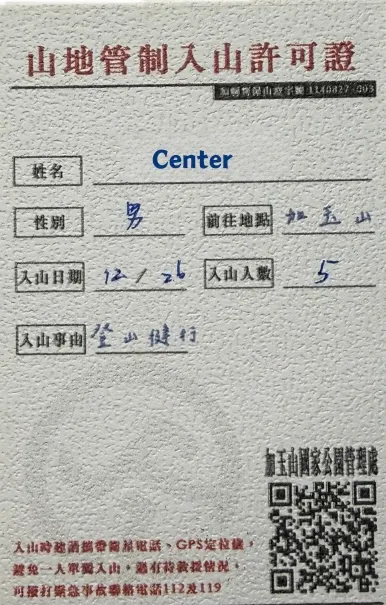 山地管制入山許可證
加刪育保山證字號 1140827-003
姓名 Center
性別 男 前往地點 加玉山
入山日期 12/26 入山人數 5
入山事由 登山健行
加玉山國家公園管理處
入山時建議攜帶衛星電話、GPS定位儀,
避免一人單獨入山,遇有待救援情況,
可撥打緊急事故聯絡電話112及119